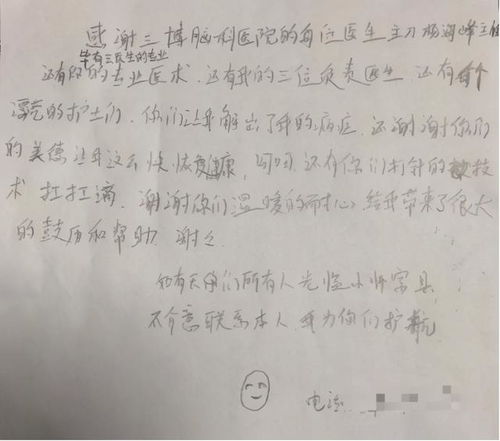 感谢三博脑科医院的每位医生主刀杨海峰主任
毕有三医生的专业
还有的专业医术.还有我的三位负责医生.还有每个
漂亮的护士们.你们让我解出了我的病症.还谢谢你们
的美德让我这么快恢复健康,还有你们打针的技
术扛扛滴.谢谢你们温暖的耐心给我带来了很大
的鼓历和帮助.谢谢
如有天你们所有人光临小师宗县
不介意联系本人.我为你们护航
电话